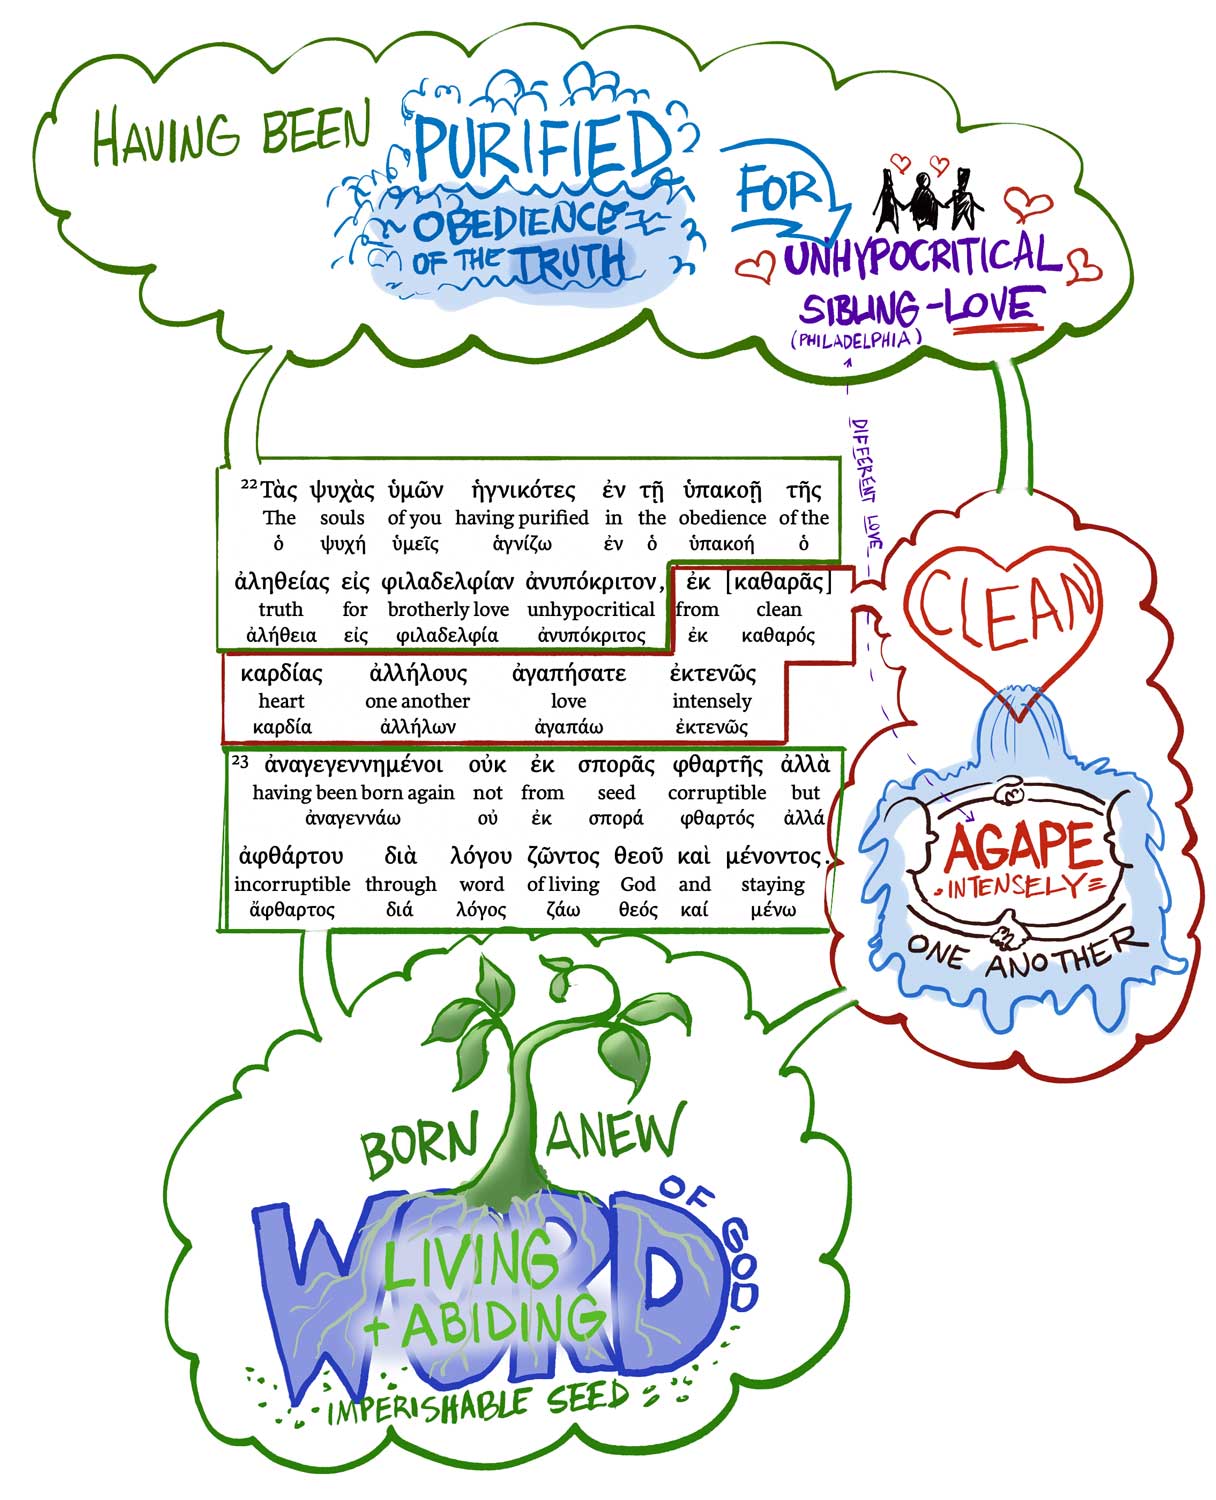 HAVING BEEN
PURIFIED
OBEDIENCE
OF THE TRUTH
FOR
UNHYPOCRITICAL
SIBLING-LOVE
(PHILADELPHIA)
DIFFERENT LOVE
22 Τὰς ψυχὰς ὑμῶν ἡγνικότες ἐν τῇ ὑπακοῇ τῆς
The souls of you having purified in the obedience of the
ὁ ψυχή ὑμεῖς ἁγνίζω ἐν ὁ ὑπακοή ὁ
ἀληθείας εἰς φιλαδελφίαν ἀνυπόκριτον, ἐκ [καθαρᾶς]
truth for brotherly love unhypocritical from clean
ἀλήθεια εἰς φιλαδελφία ἀνυπόκριτος ἐκ καθαρός
καρδίας ἀλλήλους ἀγαπήσατε ἐκτενῶς
heart one another love intensely
καρδία ἀλλήλων ἀγαπάω ἐκτενῶς
23 ἀναγεγεννημένοι οὐκ ἐκ σπορᾶς φθαρτῆς ἀλλὰ
having been born again not from seed corruptible but
ἀναγεννάω οὐ ἐκ σπορά φθαρτός ἀλλά
ἀφθάρτου διὰ λόγου ζῶντος θεοῦ καὶ μένοντος.
incorruptible through word of living God and staying
ἄφθαρτος διά λόγος ζάω θεός καί μένω
CLEAN
AGAPE
INTENSELY
ONE ANOTHER
BORN ANEW
WORD
OF GOD
LIVING
+ ABIDING
IMPERISHABLE SEED